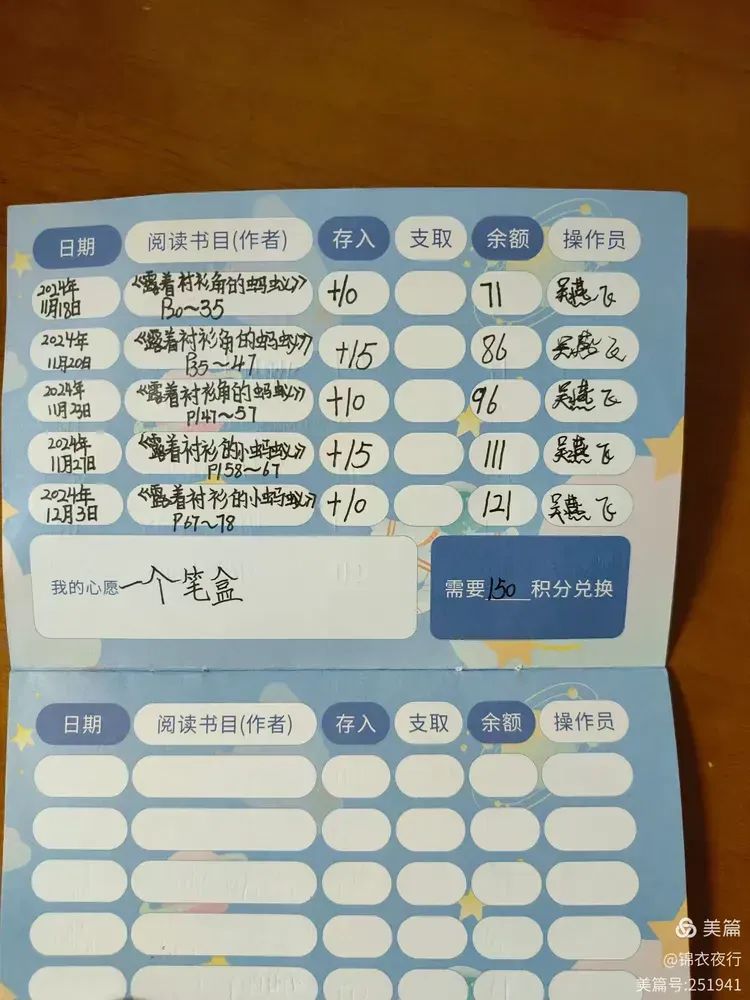 日期 阅读书目(作者) 存入 支取 余额 操作员
2024年 《露着衬衫角的蚂蚁》 +10 71 吴燕飞
11月18日 P30～35
2024年 《露着衬衫角的蚂蚁》 +15 86 吴燕飞
11月20日 P35～47
2024年 《露着衬衫角的蚂蚁》 +10 96 吴燕飞
11月23日 P147～57
2024年 《露着衬衫的小蚂蚁》 +15 111 吴燕飞
11月27日 P158～67
2024年 《露着衬衫的小蚂蚁》 +10 121 吴燕飞
12月3日 P67～78
我的心愿 一个笔盒 需要150积分兑换
日期 阅读书目(作者) 存入 支取 余额 操作员
美篇
@锦衣夜行
美篇号:251941